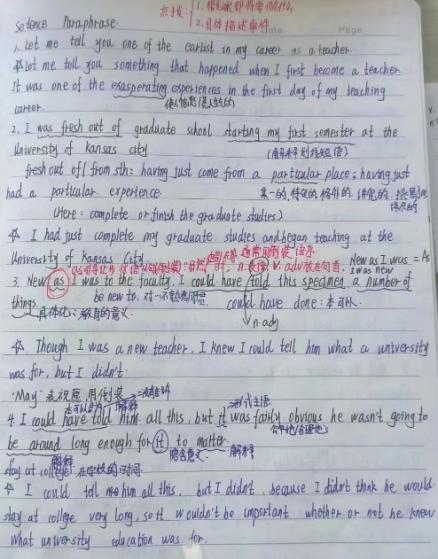 点拨: 1.
2.具体描述事件
Page
Sotence Paraphrase
1. Let me tell you one of the earlist in my career as a teacher.
☆ Let me tell you something that happened when I first become a teacher
It was one of the exasperating experiences in the first day of my teaching
career.
2. I was fresh out of graduate school starting my first semester at the
University of kansas city
fresh out of/from sth: having just come from a particular place; having just
had a particular experence.
(Here: complete or finish the graduate studies)
☆ I had just complete my graduate studies and began teaching at the
University of Kansas City.
New as I was = As
I was new
3. New as I was to the faculty, I could have told this specimen a number of
things.
be new to: 对一不熟悉
could have done: 本可以.
n. adj
☆ Though I was a new teacher, I knew I could tell him what a university
was for, but I didn't.
"May" 表祝愿 用倒装
4. I could have told him all this, but it was fairly obvious he wasn't going to
be around long enough for it to matter.
解释
stay at college: 在学校的时间.
☆ I could tell him all this, but I didn't, because I didn't think he would
stay at collge very long, so it wouldn't be important whether or not he knew
what university education was for.